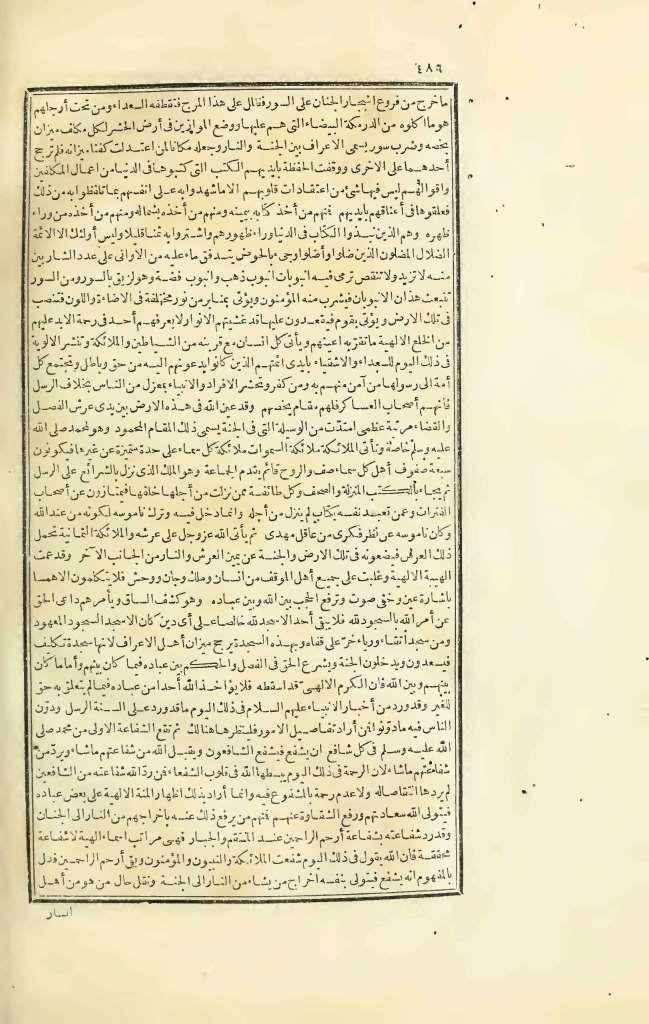 ٤٨٦
ما خرج من فروع اشجار الجنان على السور فتمال على هذا المرج فتقطفه السعداء ومن تحت أرجلهم
هو ما اكلوه من الدرمكة البيضاء التى هم عليها ووضع الموازين فى أرض الحشر لكل مكلف ميزان
يخصه وضرب بسور يسمى الاعراف بين الجنة والنار وجعله مكانا لمن اعتدلت كفتا ميزانه فلم ترجح
أحدهما على الاخرى ووقفت الحفظة بايديهم الكتب التى كتبوها فى الدنيا من اعمال المكلفين
واقوالهم ليس فيها شئ من اعتقادات قلوبهم الا ما شهدوا به على انفسهم بما تلفظوا به من ذلك
فعلقوها فى أعناقهم بايديهم فمنهم من أخذ كتابه بيمينه ومنهم من أخذه بشماله ومنهم من أخذه من وراء
ظهره وهم الذين نبذوا الكتاب فى الدنيا وراء ظهورهم واشتروا به ثمنا قليلا وليس أولئك الا الائمة
الضلال المضلون الذين ضلوا وأضلوا وجىء بالحوض يتدفق ماء عليه من الاوانى على عدد الشاربين
منه لا تزيد ولا تنقص ترمى فيه انبوبات انبوب ذهب وانبوب فضة وهو لزيق بالسور ومن السور
تنبعث هذان الانبوبان فيشرب منه المؤمنون ويؤتى بمنابر من نور مختلفة فى الاضاءة واللون فتنصب
فى تلك الارض ويؤتى بقوم فيقعدون عليها قد غشيتهم الانوار لا يعرفهم أحد فى رحمة الابد عليهم
من الخلع الالهية ما تقر به اعينهم ويأتى كل انسان مع قرينه من الشياطين والملائكة وتنشر الالوية
فى ذلك اليوم للسعداء والاشقياء بايدى ائمتهم الذين كانوا يدعونهم اليه من حق وباطل وتجتمع كل
أمة الى رسولها من آمن منهم به ومن كفر وتحشر الافراد والانبياء بمعزل من الناس بخلاف الرسل
فانهم أصحاب العساكر فلهم مقام يخصهم وقد عين الله فى هذه الارض بين يدى عرش الفصل
والقضاء مرتبة عظمى امتدت من الوسيلة التى فى الجنة يسمى ذلك المقام المحمود وهو لمحمد صلى الله
عليه وسلم خاصة وتأتى الملائكة ملائكة السموات ملائكة كل سماء على حدة متميزة عن غيرها فيكونون
سبعة صفوف أهل كل سماء صف والروح قائم يقدم الجماعة وهو الملك الذى نزل بالشرائع على الرسل
ثم يجاء بالكتب المنزلة والصحف وكل طائفة ممن نزلت من أجلها خلفها فيمتازون عن أصحاب
الفترات وعمن تعبد نفسه بكتاب لم ينزل من أجله وانما دخل فيه وترك ناموسه لكونه من عند الله
وكان ناموسه عن نظر فكرى من عاقل مهدى ثم يأتى الله عز وجل على عرشه والملائكة الثمانية تحمل
ذلك العرش فيضعونه فى تلك الارض والجنة عن يمين العرش والنار من الجانب الآخر وقد عمت
الهيبة الالهية وغلبت على جميع أهل الموقف من انسان وملك وجان ووحش فلا يتكلمون الا همسا
باشارة عين وخفى صوت وترفع الحجب بين الله وبين عباده وهو كشف الساق ويأمرهم داعى الحق
عن أمر الله بالسجود لله فلا يبقى أحد الا سجد لله خالصا على أى دين كان الا سجد السجود المعهود
ومن سجد اتقاء ورياء خر على قفاه وبهذه السجدة يرجح ميزان أهل الاعراف لانها سجدة تكليف
فيسعدون ويدخلون الجنة ويشرع الحق فى الفصل والحكم بين عباده فيما كان بينهم وأما ما كان
بينهم وبين الله فان الكرم الالهى قد اسقطه فلا يؤاخذ الله أحدا من عباده فيما لم يتعلق به حق
للغير وقد ورد من أخبار الانبياء عليهم السلام فى ذلك اليوم ما قد ورد على السنة الرسل ودون
الناس فيه ما دونوا فمن أراد تفاصيل الامور فلينظرها هنالك ثم تقع الشفاعة الاولى من محمد صلى
الله عليه وسلم فى كل شافع ان يشفع فيشفع الشافعون ويقبل الله من شفاعتهم ما شاء ويرد من
شفاعتهم ما شاء لان الرحمة فى ذلك اليوم يبسطها الله فى قلوب الشفعاء فمن رد الله شفاعته من الشافعين
لم يردها انتقاصا له ولا عدم رحمة بالمشفوع فيه وانما أراد بذلك اظهار المنة الالهية على بعض عباده
فيتولى الله سعادتهم ورفع الشقاوة عنهم فمنهم من يرفع ذلك عنه باخراجهم من النار الى الجنان
وقد ورد شفاعته بشفاعة أرحم الراحمين عند المنتقم والجبار فهى مراتب اسماء الهية لا شفاعة
محققة فان الله يقول فى ذلك اليوم شفعت الملائكة والنبيون والمؤمنون وبقى أرحم الراحمين فدل
بالمفهوم انه يشفع فيتولى بنفسه اخراج من يشاء من النار الى الجنة ونقل حال من هو من أهل